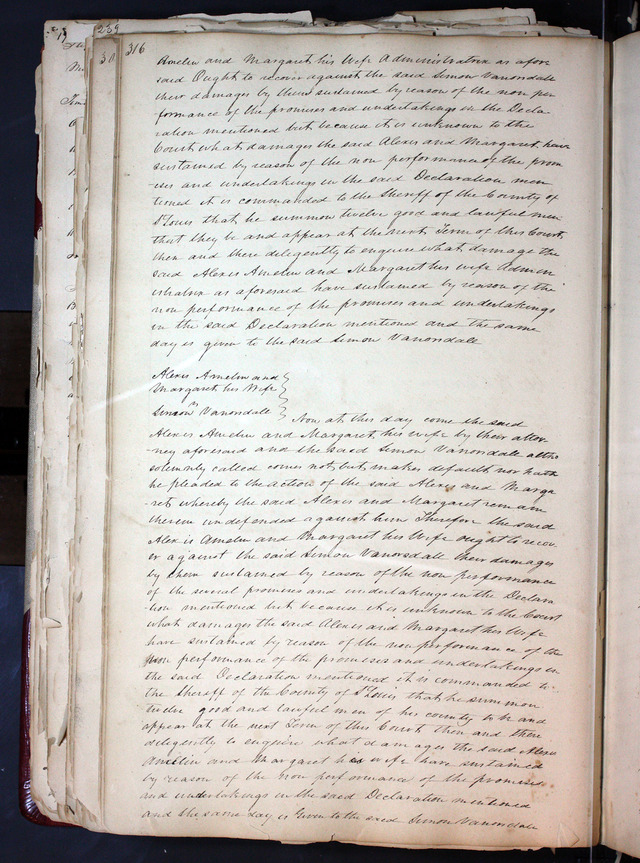 239
30
316
Amelin and Margaret his Wife Administratrix as afore
said Ought to recover against the said Simon Vanorsdale
their damages by them sustained by reason of the non per
formance of the promises and undertakings in the Decla
ration mentioned but because it is unknown to the
Court what damages the said Alexis and Margaret have
sustained by reason of the non performance of the prom
ises and undertakings in the said Declaration men
tioned it is commanded to the Sheriff of the County of
St Louis that he summon twelve good and lawful men
that they be and appear at the next Term of this Court
then and there diligently to enquire what damage the
said Alexis Amelin and Margaret his wife Admin
istratrix as aforesaid have sustained by reason of the
non performance of the promises and undertakings
in the said Declaration mentioned and the same
day is given to the said Simon Vanorsdale
Alexis Amelin and
Margaret his Wife
vs
Simon Vanorsdale
Now at this day come the said
Alexis Amelin and Margaret his wife by their attor
ney aforesaid and the said Simon Vanorsdale altho
solemnly called comes not but makes default nor hath
he pleaded to the action of the said Alexis and Marga
ret whereby the said Alexis and Margaret remain
therein undefended against him Therefore the said
Alexis Amelin and Margaret his Wife ought to recov
er against the said Simon Vanorsdale their damages
by them sustained by reason of the non performance
of the several promises and undertakings in the Declara
tion mentioned but because it is unknown to the Court
what damages the said Alexis and Margaret his Wife
have sustained by reason of the non performance of the
non performance of the promises and undertakings in
the said Declaration mentioned it is commanded to
the Sheriff of the County of St Louis that he summon
twelve good and lawful men of his county to be and
appear at the next Term of this Court then and there
diligently to enquire what damages the said Alexis
Amelin and Margaret his wife have sustained
by reason of the non performance of the promises
and undertakings in the said Declaration mentioned
and the same day is Given to the said Simon Vanorsdale